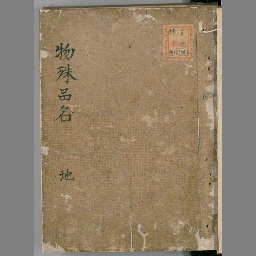 物殊品名 地